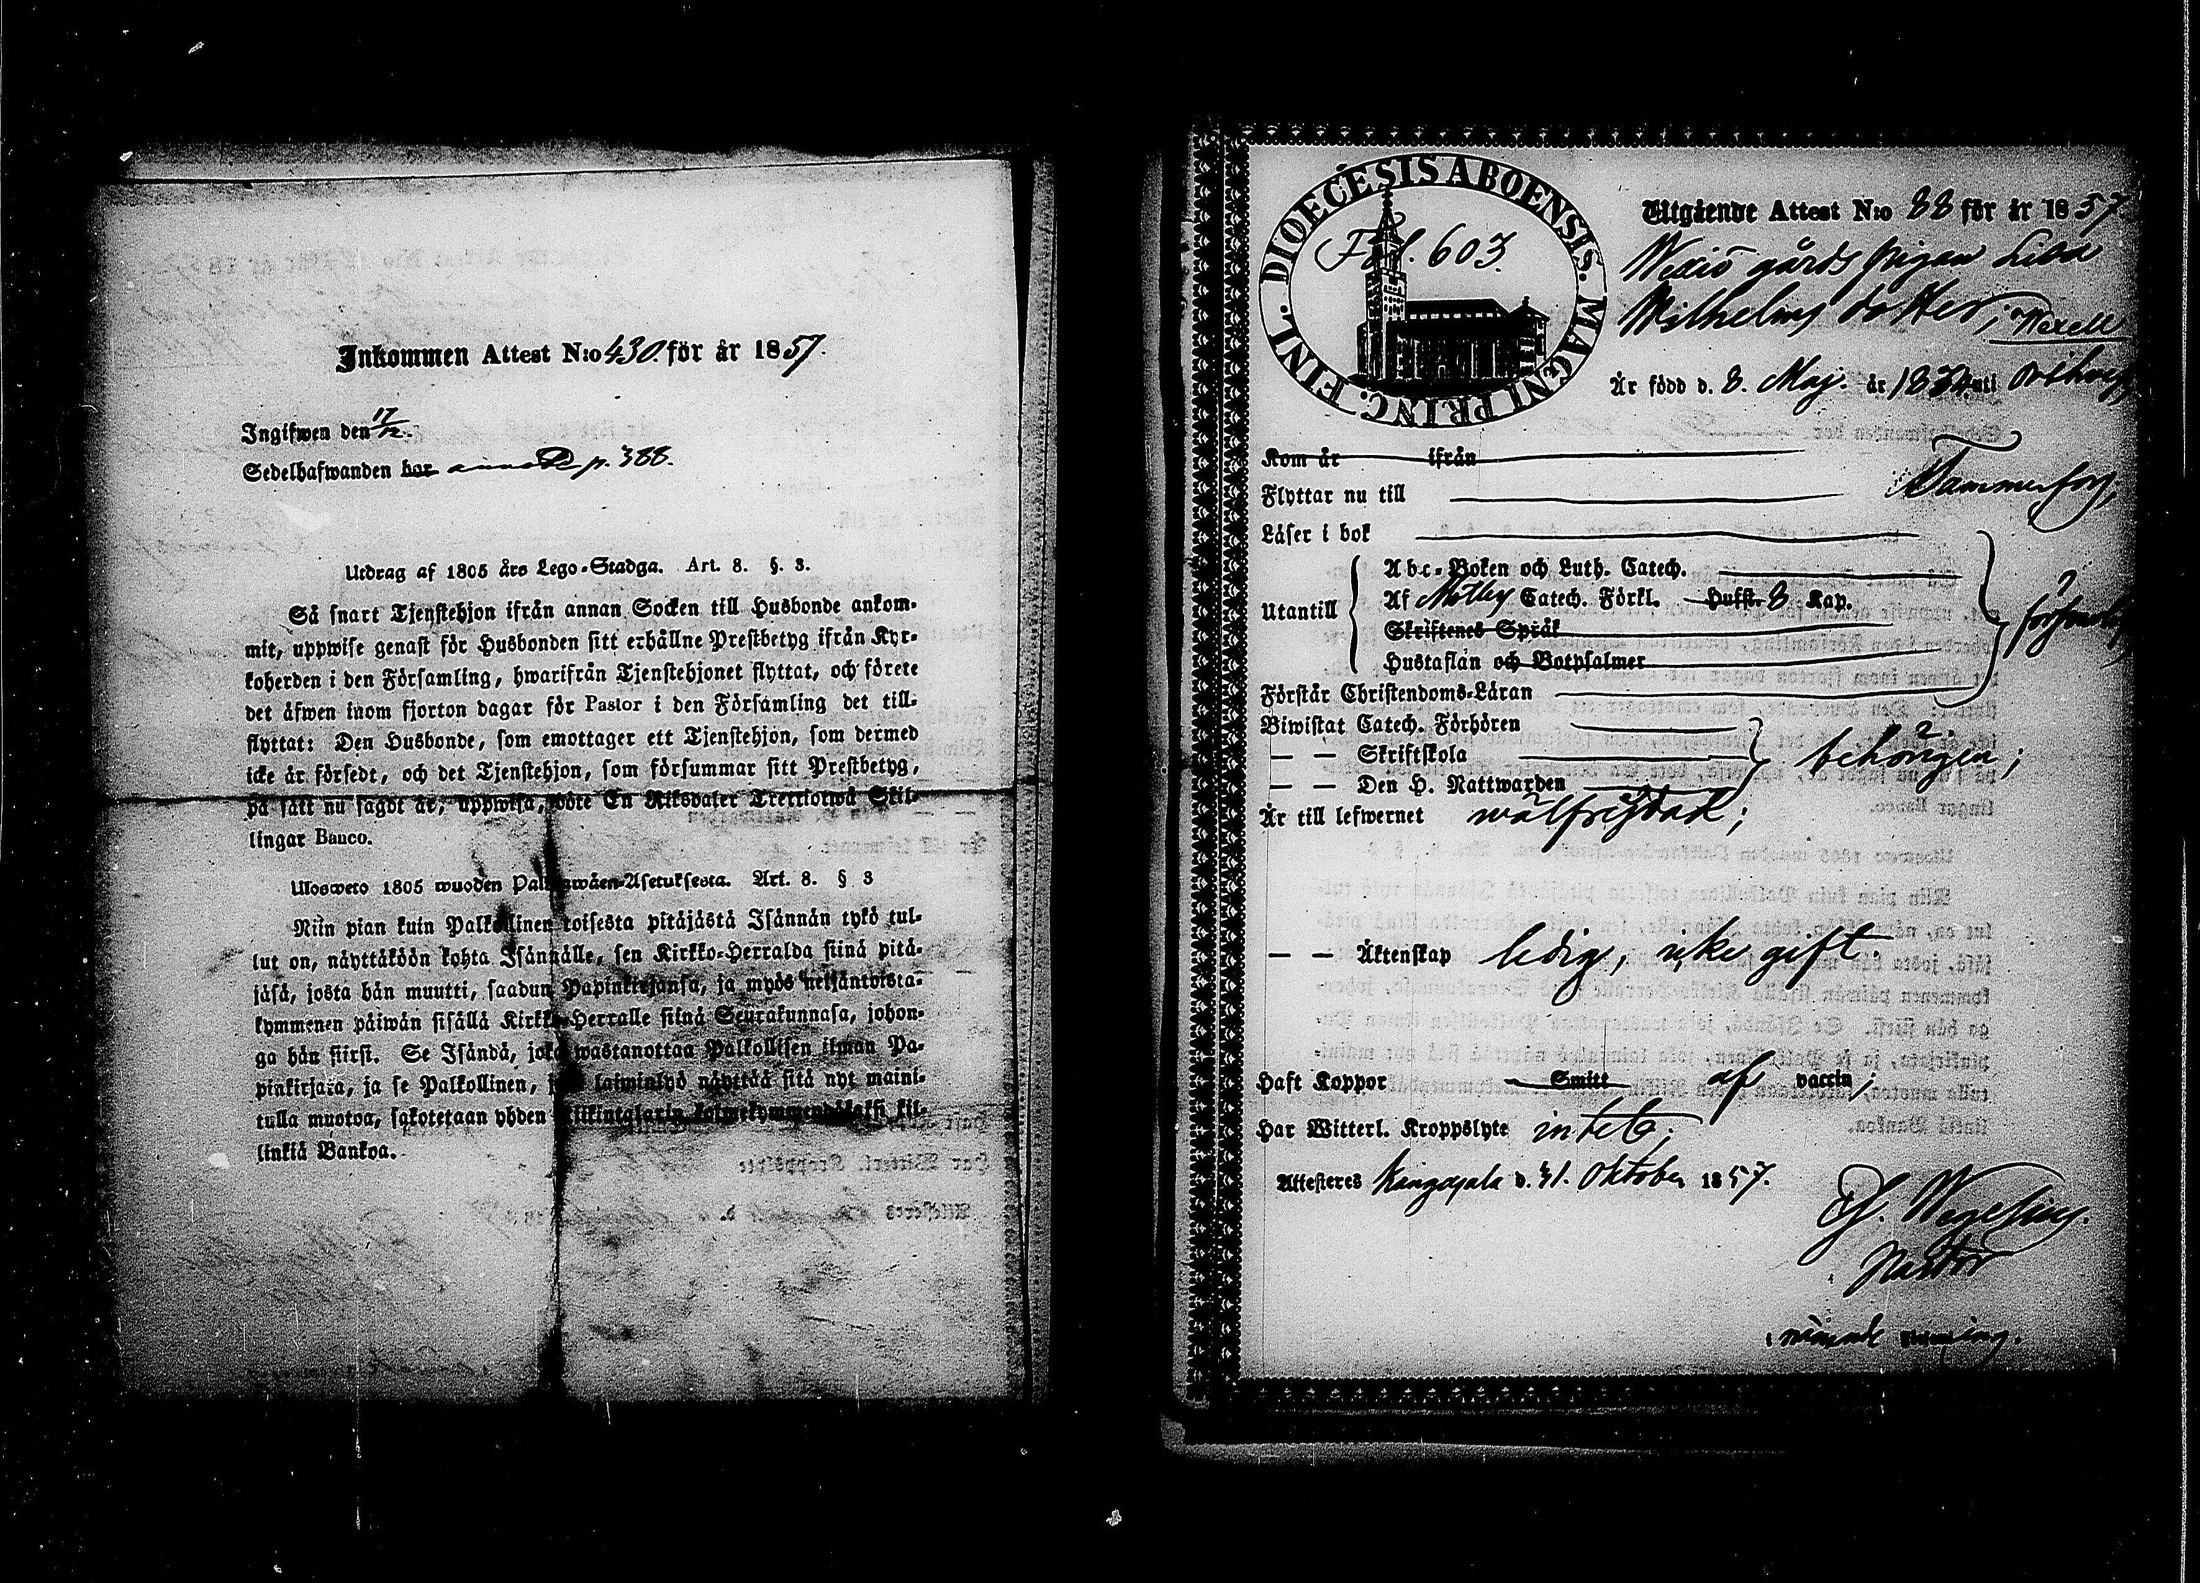 Inkommen Attest N:o 430. för år 1857.
Ingifwen den 17/12.
Sedelhafwanden bor p. 388.
Utdrag af 1805 års Lego-Stadga. Art. 8. §. 3.
Så snart Tjenstehjon ifrån annan Socken till Husbonde ankom-
mit, uppwise genast för Husbonden sitt erhållne Prestbetyg ifrån Kyr-
koherden i den Församling, hwarifrån Tjenstehjonet flyttat, och förete
det äfwen inom fjorton dagar för Pastor i den Församling det till-
flyttat: Den Husbonde, som emottager ett Tjenstehjon, som dermed
icke är försedt, och det Tjenstehjon, som försummar sitt Prestbetyg,
på sätt nu sagdt är, uppwisa, böte En Riksdaler Trettiotwå Skil-
lingar Banco.
Ulosweto 1805 wuoden Palkkawäen-Asetuksesta. Art. 8. § 3
Niin pian kuin Palkollinen toisesta pitäjästä Isännän tykö tul-
lut on, näyttäköön kohta Isännälle, sen Kirkko-Herralda siinä pitä-
jäsä, josta hän muutti, saadun Papinkirjansa, ja myös neljäntoista-
kymmenen päiwän sisällä Kirkko-Herralle siinä Seurakunnasa, johon-
ga hän siirsi. Se Isändä, joka wastanottaa Palkollisen ilman Pa-
pinkirjata, ja se Palkollinen, joka laiminlyö näyttää sitä nyt maini-
tulla muotoa, sakotetaan yhden Riikintalarin kolmekymmendäkaksi kil-
linkiä Bankoa.
DIOECESIS ABOENSIS. MAGNI PRINC. FINL.
Fol. 603.
Utgående Attest N:o 88 för år 1857.
Wexiö gårds pigan Lisa
Wilhelms dotter,
Är född d. 8. Maj. år 18 uti
Kom år ifrån
Flyttar nu till Tammerfors,
Läser i bok
Utantill
Abc-Boken och Luth. Catech.
Af Catech. Förkl. Hufst. 8 Kap.
Skriftenes Språk
Hustaflan och Botpsalmer
försvarligt
Förstår Christendoms-Läran
Biwistat Catech. Förhören
— — Skriftskola behörigen;
— — Den H. Nattwarden
Är till lefwernet wälfrejdad;
— — Äktenskap ledig, icke gift.
Haft Koppor Smitt af vaccin;
Har Witterl. Kroppslyte intet;
Attesteres Kangasala d. 31. Oktober 1857.
Wegelius.
Pastor